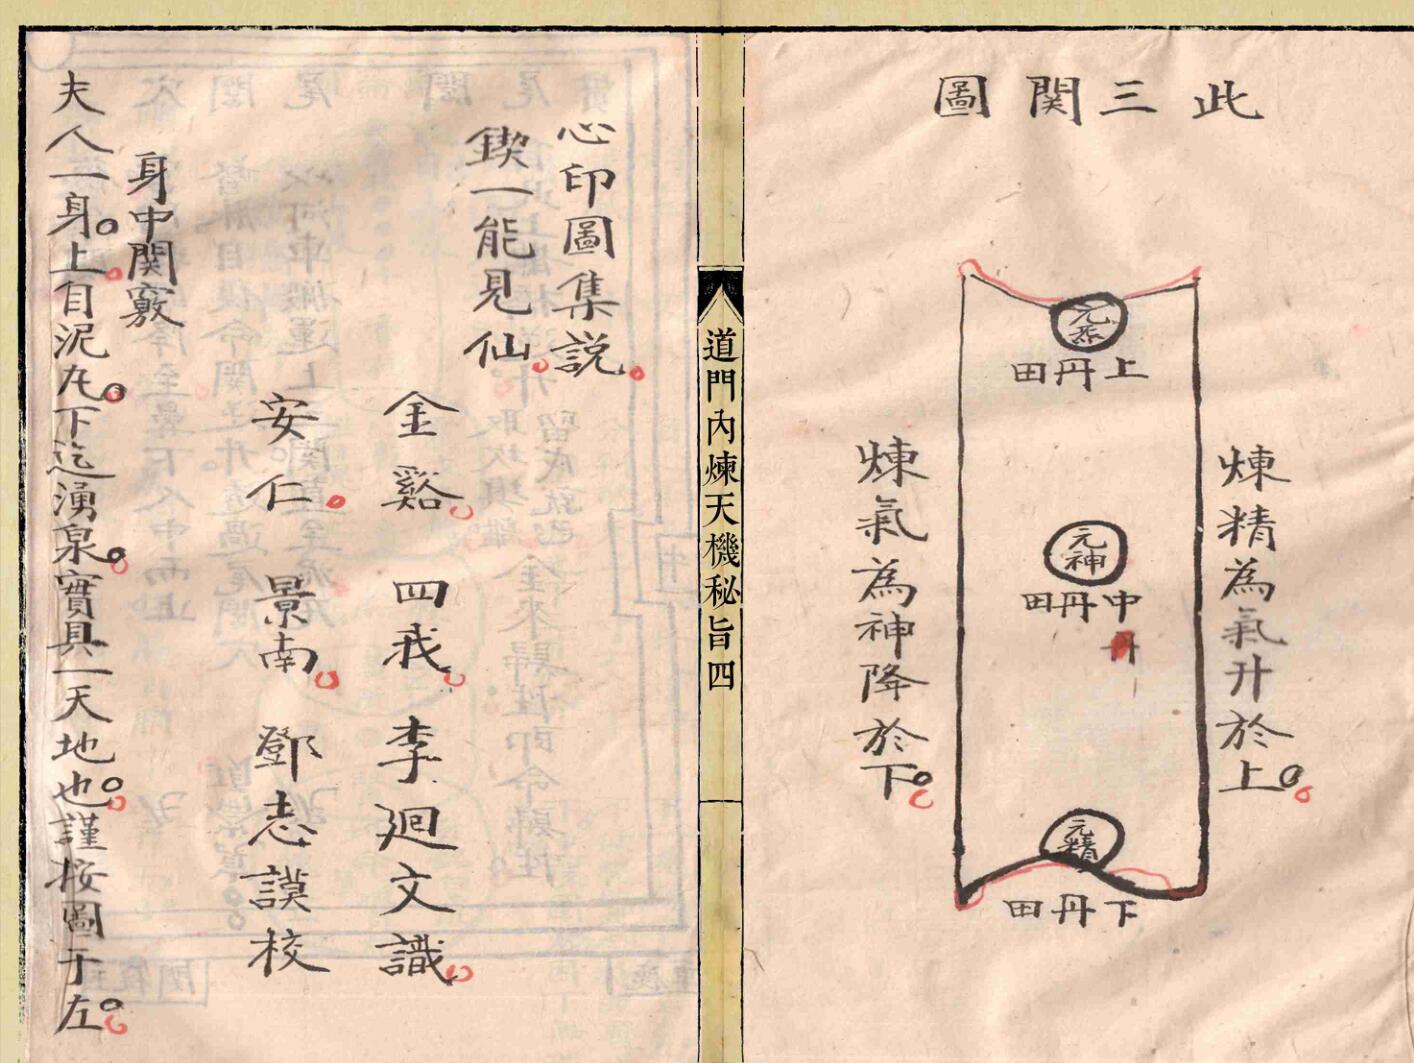 此三関圖
煉精為氣升於上。
元炁
上丹田
元神
中丹田
丹
元精
下丹田
煉氣為神降於下。
道門內煉天機秘旨四
心印圖集説。
鍥一能見仙。
金谿。四我。李迴文識。
安仁。景南。鄧志謨校
身中関竅
夫人一身。上自泥丸。下迄湧泉。實具一天地也。謹按圖于左。